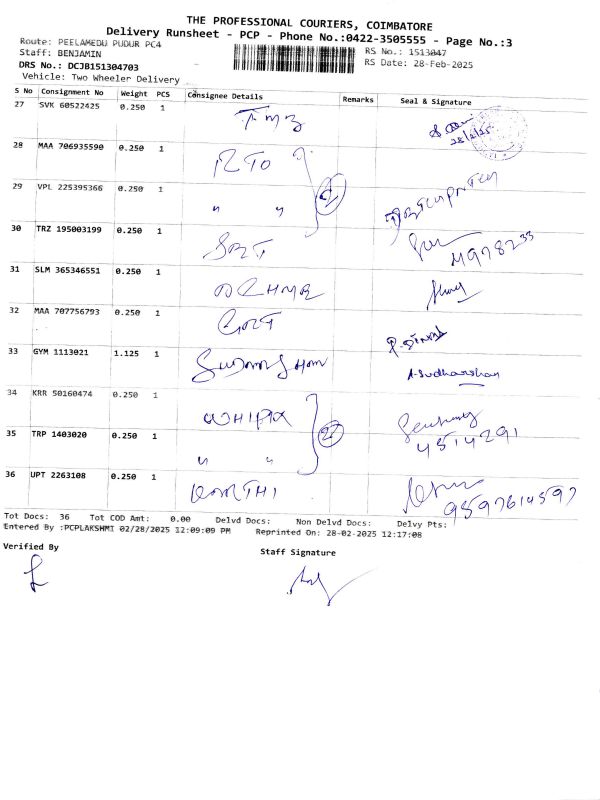 THE PROFESSIONAL COURIERS, COIMBATORE
Delivery Runsheet - PCP - Phone No.:0422-3505555 - Page No.:3
Route: PEELAMEDU PUDUR PC4 RS No.: 1513047
Staff: BENJAMIN RS Date: 28-Feb-2025
DRS No.: DCJB151304703
Vehicle: Two Wheeler Delivery
S No Consignment No Weight PCS Consignee Details Remarks Seal & Signature
27 SVK 60522425 0.250 1 TMB
28 MAA 706935590 0.250 1 RTO
29 VPL 225395366 0.250 1 " "
30 TRZ 195003199 0.250 1
31 SLM 365346551 0.250 1
32 MAA 707756793 0.250 1
33 GYM 1113021 1.125 1 A-Sudharshan
34 KRR 50160474 0.250 1
4514291
35 TRP 1403020 0.250 1 " "
36 UPT 2263108 0.250 1 9597614597
Tot Docs: 36 Tot COD Amt: 0.00 Delvd Docs: Non Delvd Docs: Delvy Pts:
Entered By :PCPLAKSHMI 02/28/2025 12:09:09 PM Reprinted On: 28-02-2025 12:17:08
Verified By Staff Signature